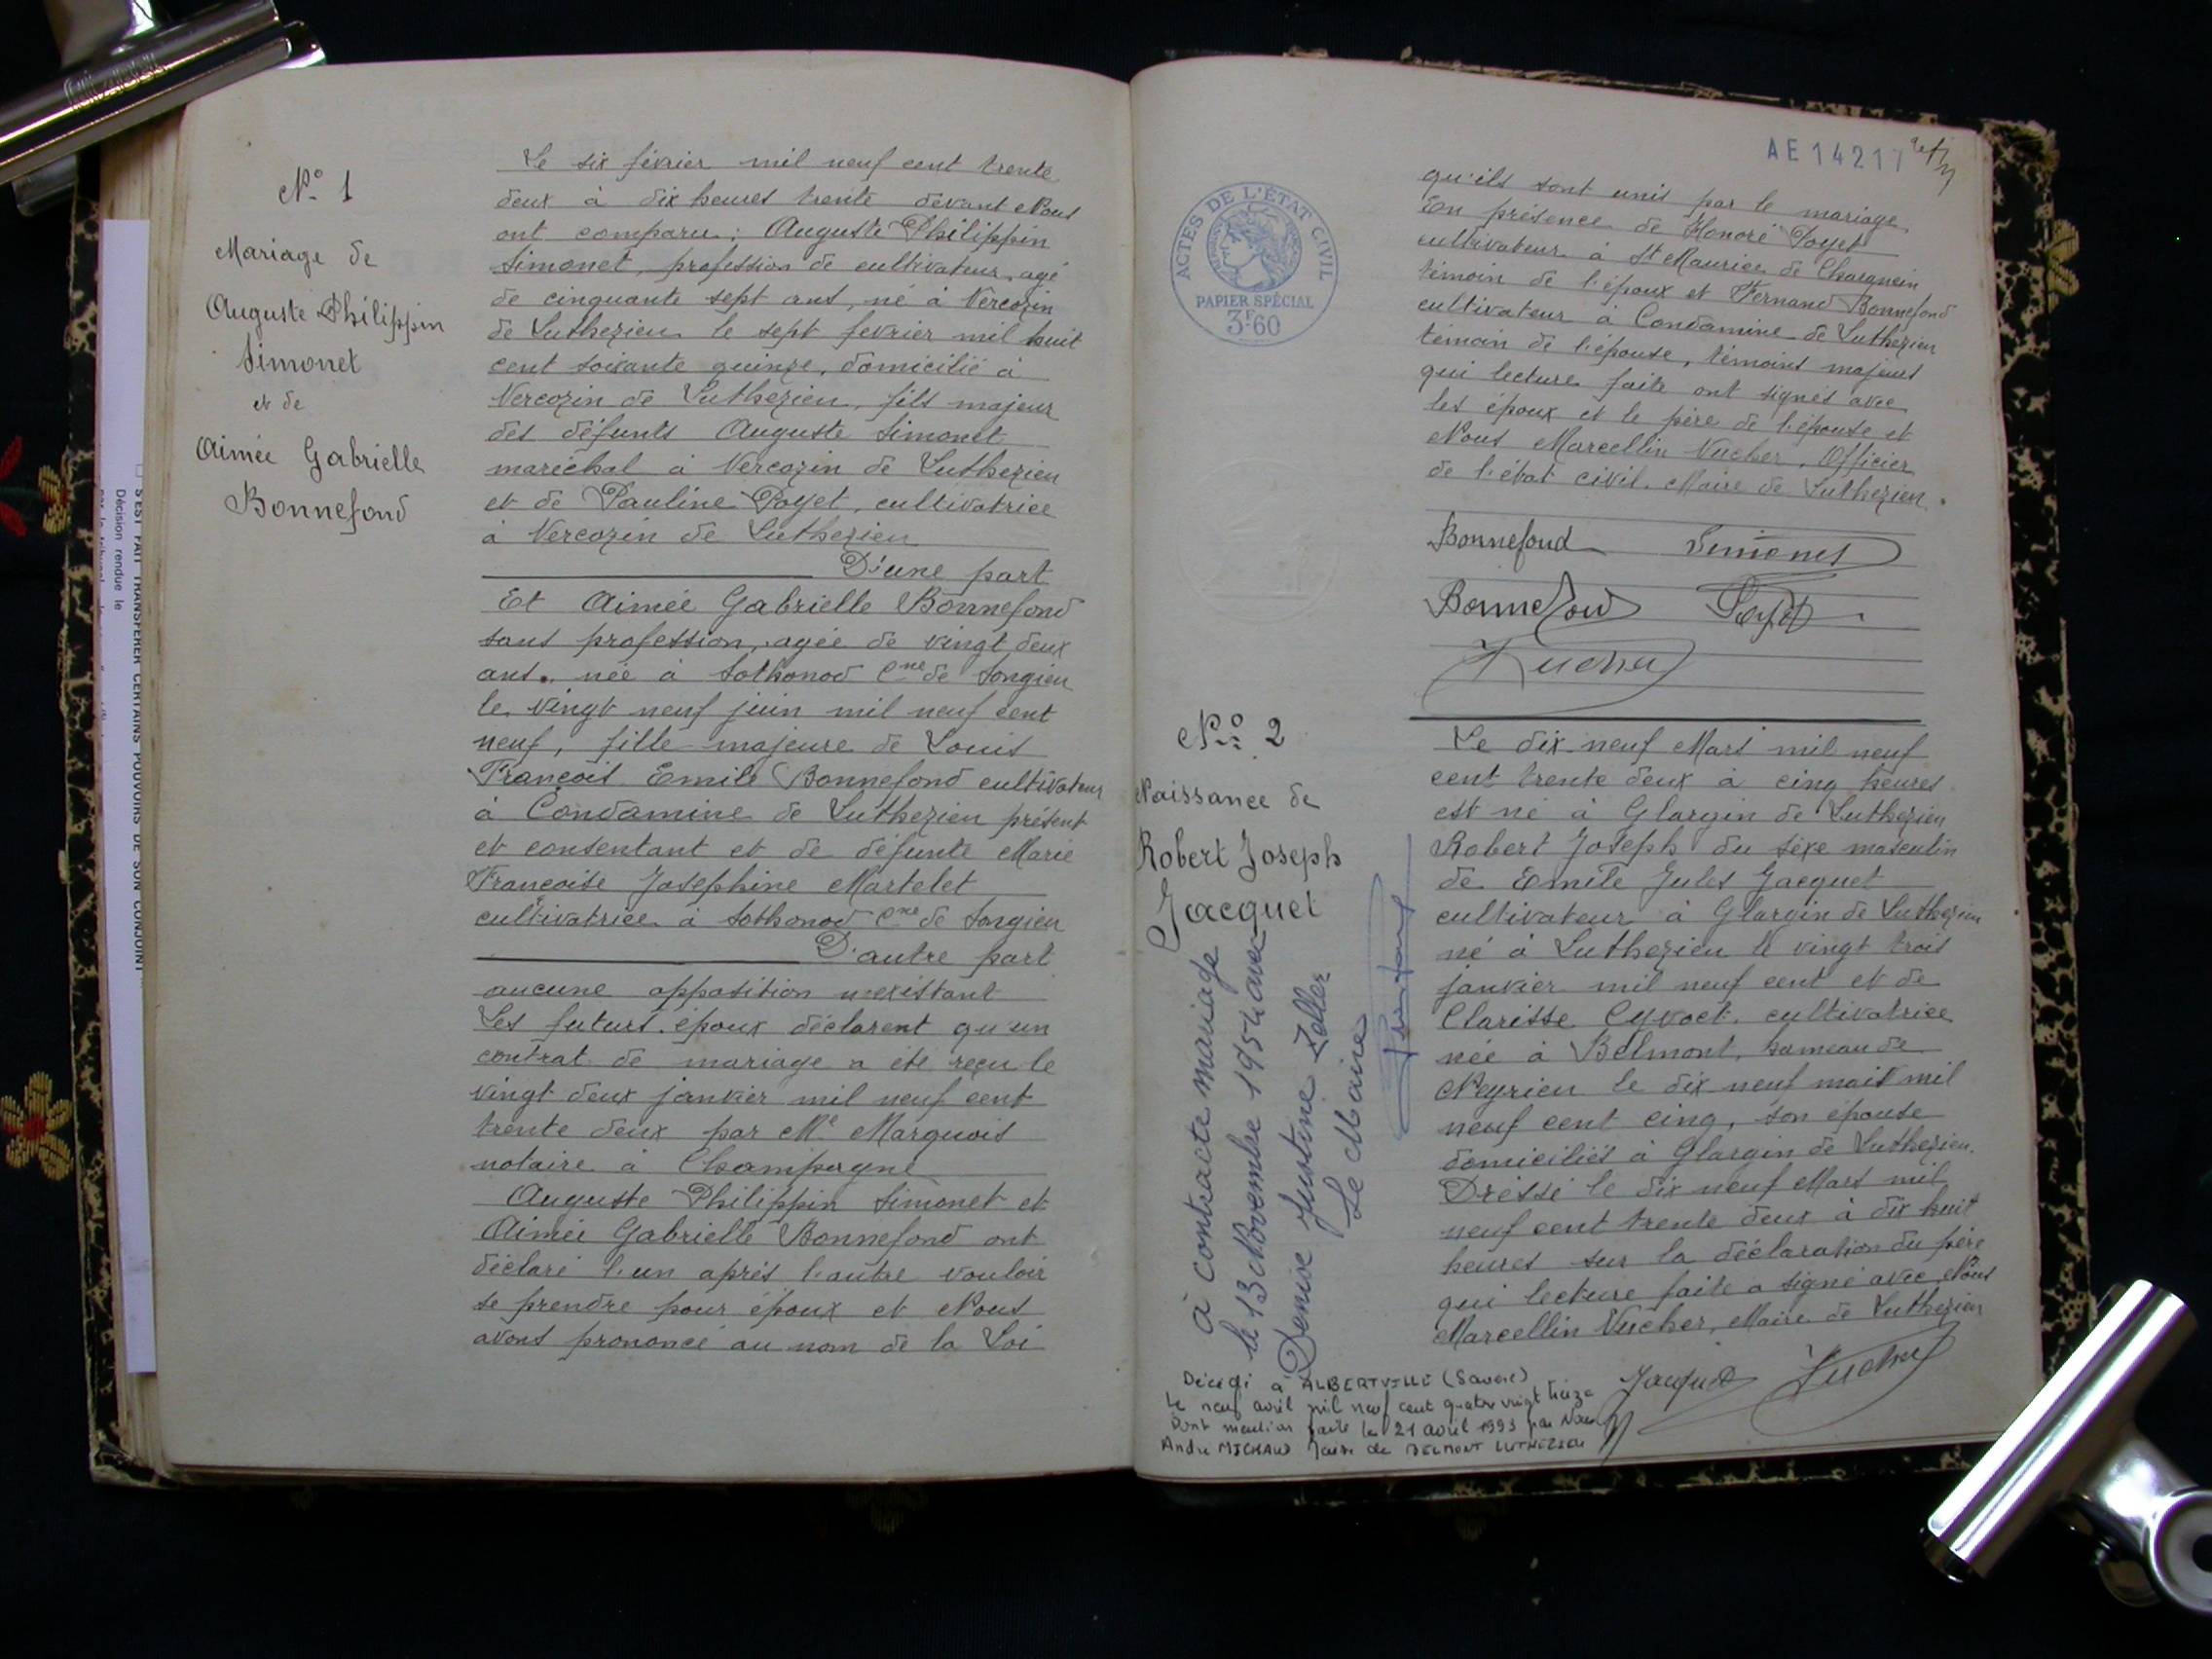 N° 1
Mariage de
Auguste Philippin
Simonet
et de
Aimée Gabrielle
Bonnefond
Le six février mil neuf cent trente
deux à dix heures trente devant Nous
ont comparu ; Auguste Philippin
Simonet, profession de cultivateur, agé
de cinquante sept ans, né à Vercozin
de Luthezieu le sept fevrier mil huit
cent soixante quinze, domicilié à
Vercozin de Luthezieu, fils majeur
des défunts Auguste Simonet
maréchal à Vercozin de Luthezieu
et de Pauline Poyet, cultivatrice
à Vercozin de Luthezieu
D'une part
Et Aimée Gabrielle Bonnefond
sans profession, agée de vingt deux
ans, née à Sothonod Cne de Songieu
le vingt neuf juin mil neuf cent
neuf, fille majeure de Louis
François Emile Bonnefond cultivateur
à Condamine de Luthezieu présent
et consentant et de défunte Marie
Françoise Josephine Martelet
cultivatrice à Sothonod Cne de Songieu
D'autre part
aucune opposition n'existant
Les futurs époux déclarent qu'un
contrat de mariage a été reçu le
vingt deux janvier mil neuf cent
trente deux par Me Marquois
notaire à Champagne
Auguste Philippin Simonet et
Aimée Gabrielle Bonnefond ont
déclaré l'un après l'autre vouloir
se prendre pour époux et Nous
avons prononcé au nom de la Loi
S'EST FAIT TRANSFÉRER CERTAINS POUVOIRS DE SON CONJOINT
Décision rendue le
AE 14217
ACTES DE L'ÉTAT CIVIL
PAPIER SPÉCIAL
3F60
qu'ils sont unis par le mariage
En présence de Honoré Poyet
cultivateur à St Maurice de Charancin
témoin de l'époux et Fernand Bonnefond
cultivateur à Condamine de Luthezieu
témoin de l'épouse, témoins majeurs
qui lecture faite ont signés avec
les époux et le père de l'épouse et
Nous Marcellin Vucher, Officier
de l'état civil. Maire de Luthezieu.
Bonnefond Simonet
Bonnefond Poyet
Vucher
N° 2
Naissance de
Robert Joseph
Jacquet
à contracté mariage
le 13 Novembre 1954 avec
Denise Justine Zeller
Le Maire
Le dix neuf Mars mil neuf
cent trente deux à cinq heures
est né à Glargin de Luthezieu
Robert Joseph du sexe masculin
de Emile Jules Jacquet
cultivateur à Glargin de Luthezieu
né à Luthezieu le vingt trois
janvier mil neuf cent et de
Clarisse Cyvoct. cultivatrice
née à Belmont, hameau de
Neyrieu le dix neuf mars mil
neuf cent cinq, son épouse
domiciliés à Glargin de Luthezieu.
Dressé le dix neuf Mars mil
neuf cent trente deux à dix huit
heures sur la déclaration du père
qui lecture faite a signé avec Nous
Marcellin Vucher, Maire de Luthezieu
Jacquet Vucher
Décédé à ALBERTVILLE (Savoie)
Le neuf avril mil neuf cent quatre vingt treize
Dont mention faite le 21 avril 1993 par Nous
André MICHAUD Maire de BELMONT LUTHEZIEU